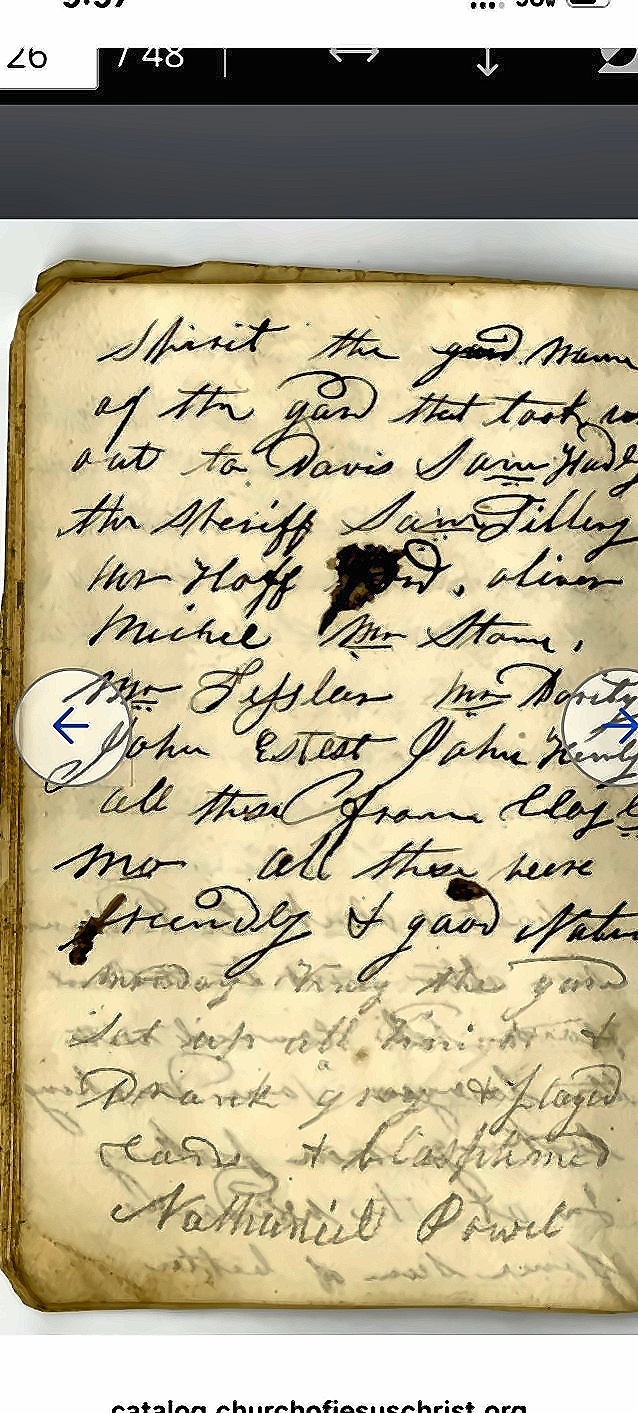 26 / 48
spirit the gard name
of the gard that took us
out to Davis Sam Hadl
the Sheriff Sam Tilling
Mr Hoff oliver
Michel Mr Stone,
Mr Fessler Mr Dority
John Estest John Henly
all these from Clay
Mo all these were
friendly & good Natu
the gard
Set up all &
Drank grog & played
cards & blasphimed
Nathaniel Powel
catalog.churchofjesuschrist.org